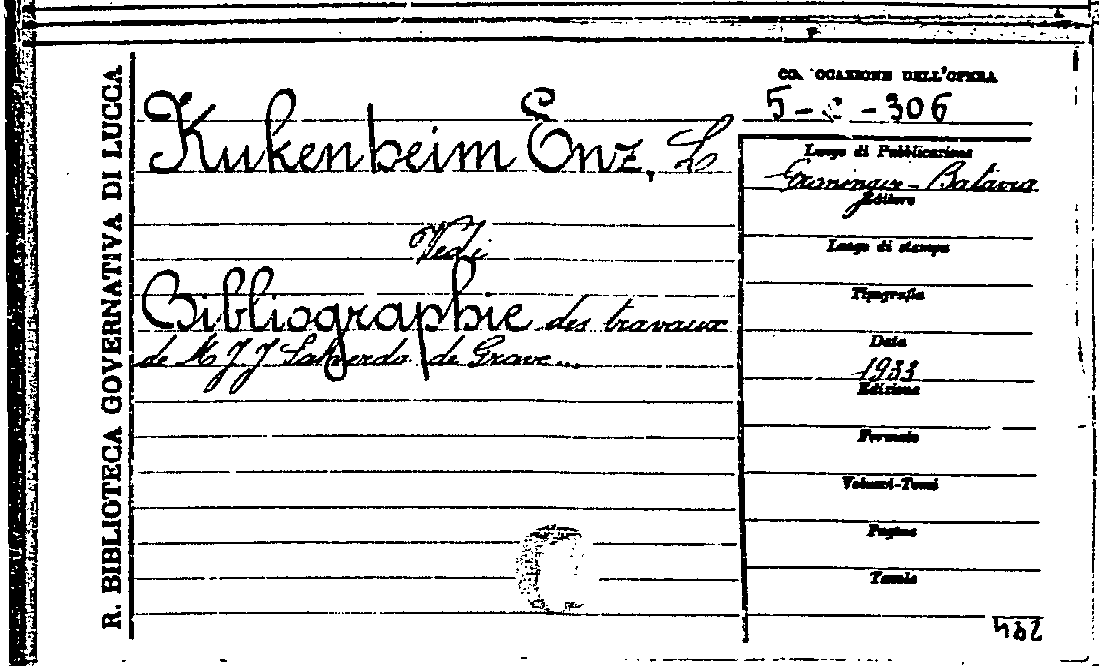 R. BIBLIOTECA GOVERNATIVA DI LUCCA
Kukenheim Enz, L
Vedi
Bibliographie des travaux
de M J J Salverda de Grave...
CO OCAZIONE DELL'OPERA
5- -306
Luogo di Pubblicazione
Groningen-Batavia
Editore
Luogo di stampa
Tipografia
Data
1933
Edizione
Formato
Volumi-Tomi
Pagine
Tavole